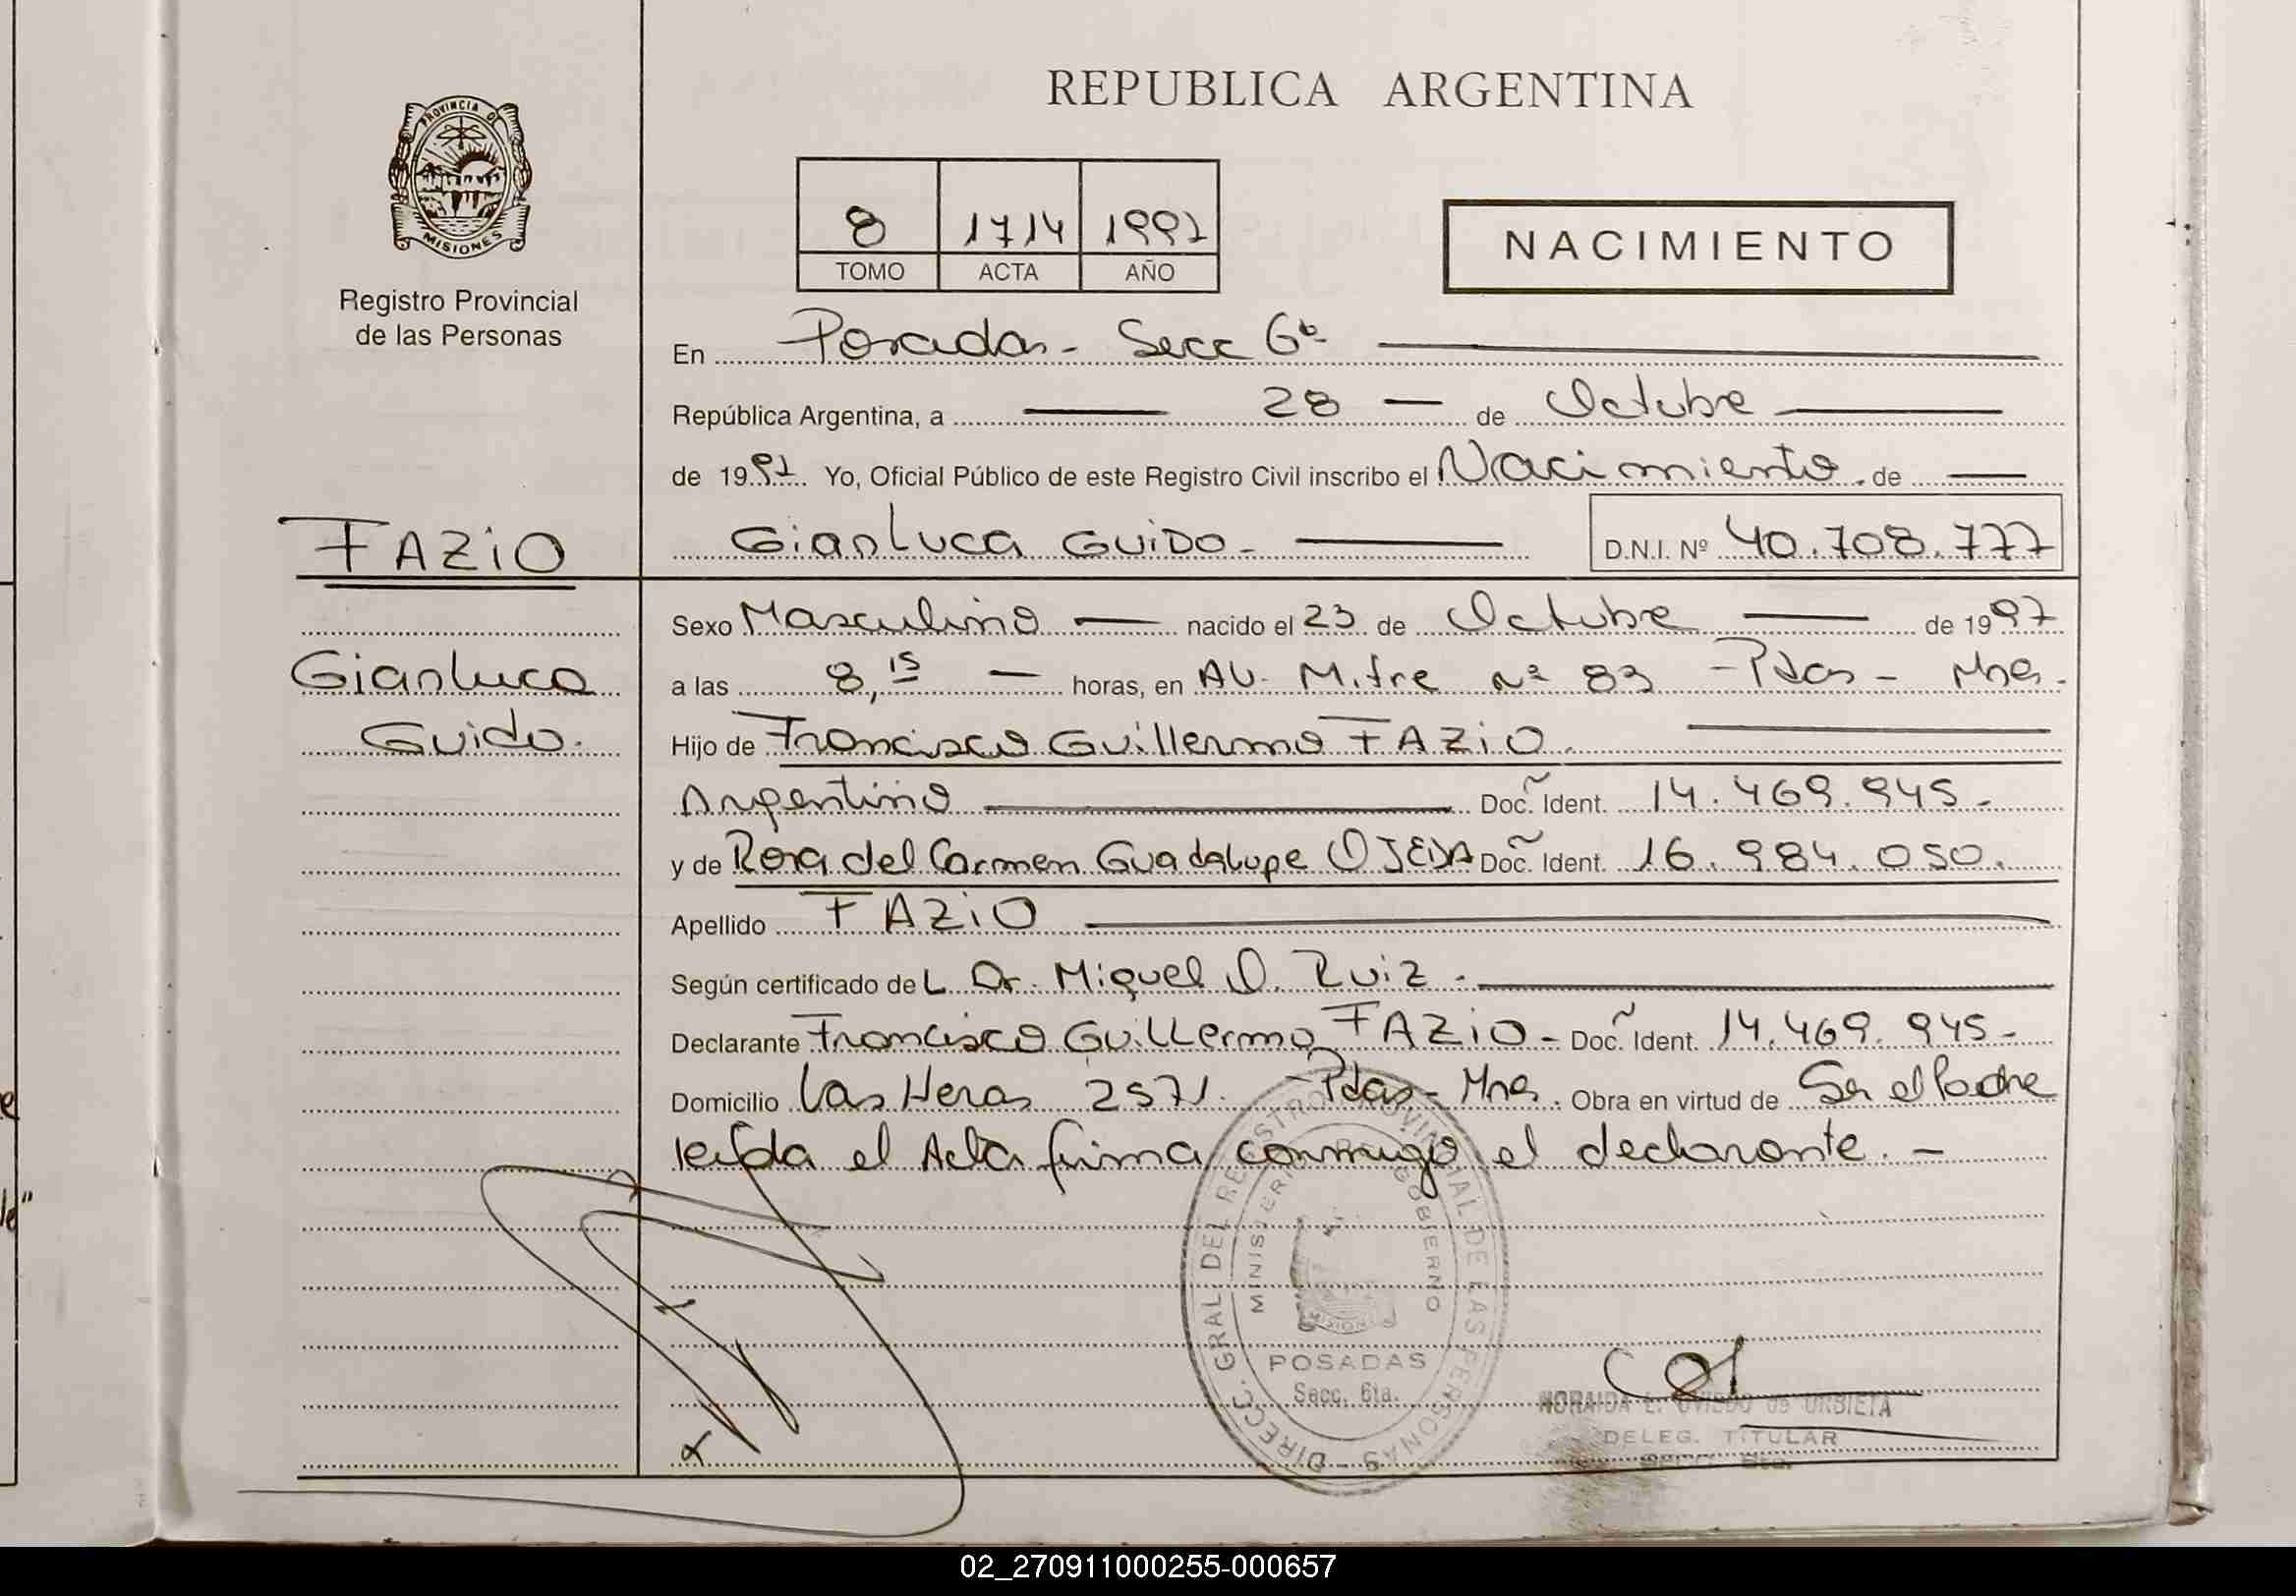 REPUBLICA ARGENTINA
PROVINCIA DE
MISIONES
Registro Provincial
de las Personas
8 1714 1997
TOMO ACTA AÑO
NACIMIENTO
En Posadas - Secc 6ª
República Argentina, a 28 de Octubre
de 1997. Yo, Oficial Público de este Registro Civil inscribo el Nacimiento de
FAZiO
Gianluca GUiDO - D.N.I. Nº 40.708.777
Sexo Masculino nacido el 23 de Octubre de 1997
Gianluca
a las 8,15 horas, en AV. Mitre nº 83 - Pdas - Mnes.
Guido.
Hijo de Francisco Guillermo FAZiO.
Argentino Doc. Ident. 14.469.945.-
y de Rosa del Carmen Guadalupe OJEDA Doc. Ident. 16.984.050.
Apellido FAZiO
Según certificado deL Dr. Miguel O. Ruiz.
Declarante Francisco Guillermo FAZiO - Doc. Ident. 14.469.945-
Domicilio Las Heras 2571. - Pdas - Mnes. Obra en virtud de Ser el Padre
leída el Acta firma conmigo el declarante. -
DIRECC. GRAL. DEL REGISTRO PROVINCIAL DE LAS PERSONAS -
MINISTERIO DE GOBIERNO
MISIONES
POSADAS
Secc. 6ta.
NORAIDA E. OVIEDO de URBIETA
DELEG. TITULAR
SECC. 6ta.
02_270911000255-000657